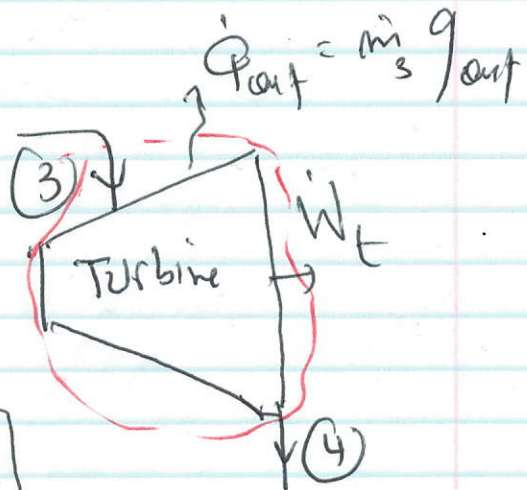 Q̇out = ṁ3 qout
3
Ẇt
Turbine
4